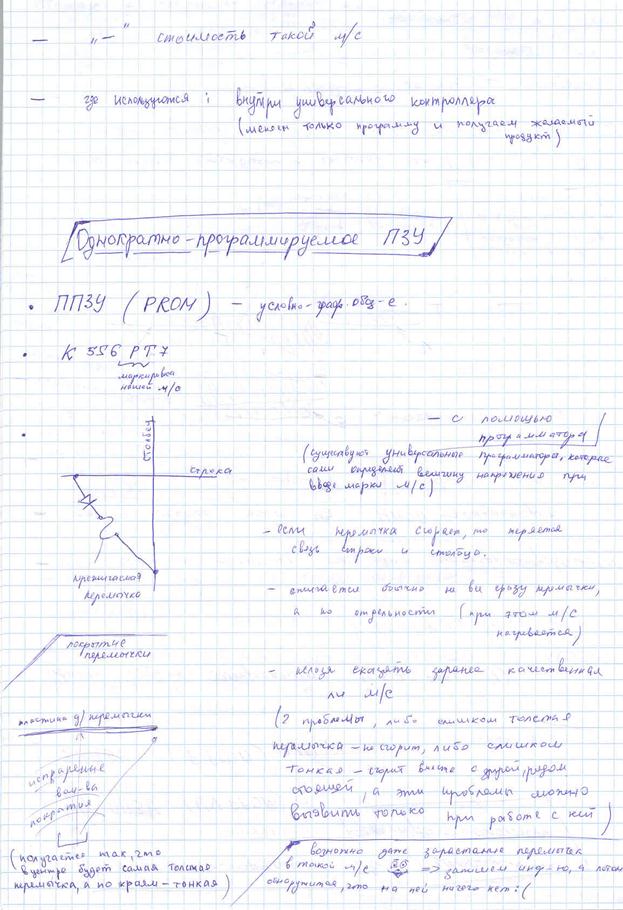 — „—“ стоимость такой м/с
— где используются: внутри универсального контроллера
(меняем только программу и получаем желаемый
продукт)
Однократно-программируемое ПЗУ
• ППЗУ (PROM) — условно-граф. обоз-е.
• К 556 РТ7
маркировка
нашей м/с
столбец
строка
пережигаемая
перемычка
— с помощью
программатора
(существуют универсальные программатора, которые
сами определяет величину напряжения при
вводе марки м/с)
- если перемычка сгорает, то теряется
связь строки и столбца.
- сжигается обычно не все сразу перемычки,
а по отдельности (при этом м/с
нагревается)
- нельзя сказать заранее качественная
ли м/с
(2 проблемы, либо слишком толстая
перемычка - не сгорит, либо слишком
тонкая - сгорит вместе с другой, рядом
стоящей, а эти проблемы можно
выявить только при работе с ней)
покрытие
перемычки
пластина д/перемычки
испарение
покрытия
(получается так, что
в центре будет самая толстая
перемычка, а по краям - тонкая)
возможно даже зарастание перемычек
в такой м/с => запишем инф-ю, а потом
обнаружится, что на ней ничего нет :(